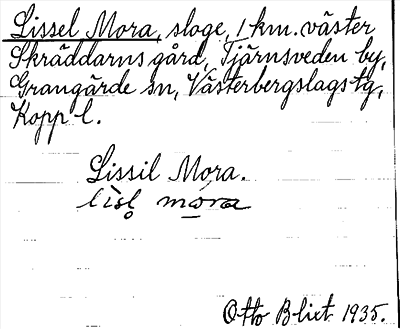 Lissel Mora, sloge, 1 km. väster
Skräddarns gård, Tjärnsveden by,
Grangärde sn, Västerbergslags tg,
Kopp. l.
Lissil Mora.
lìsl̥ mora
Otto Blixt 1935.